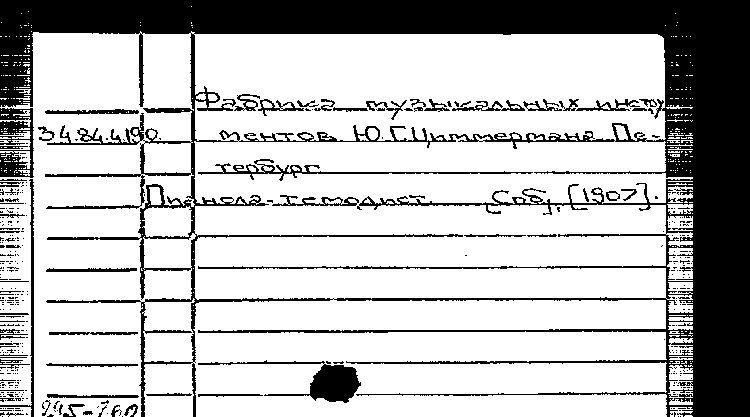 Фабрика музыкальных инстру
34.84.4.190. ментов Ю.Г.Циммермана. Пе-
тербург
Пианола-темодист. [Спб], [1907].
295-760